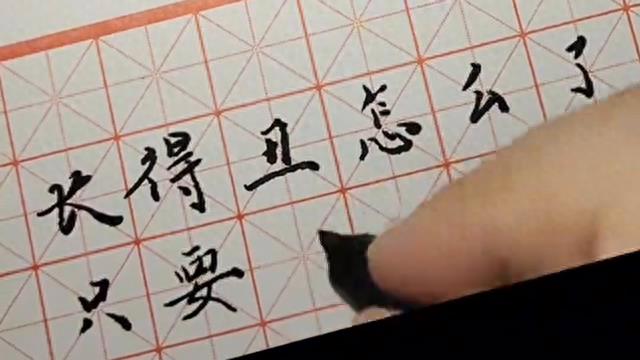 长得丑怎么了
只要